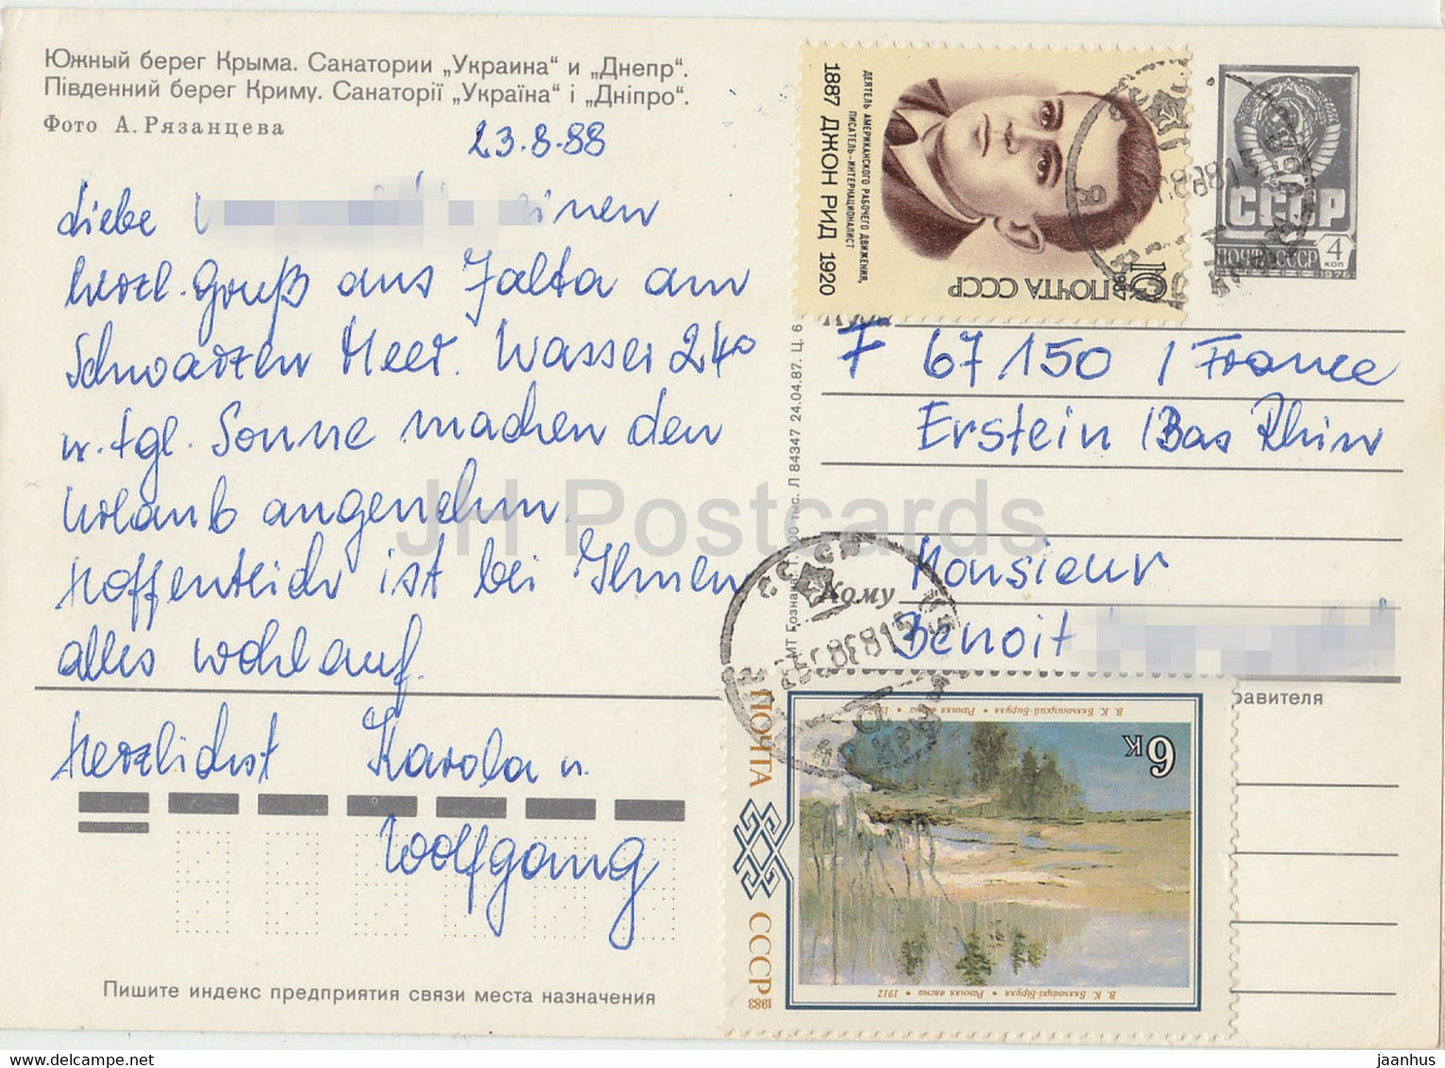 Южный берег Крыма. Санатории „Украина“ и „Днепр“.
Південний берег Криму. Санаторії „Україна“ і „Дніпро“.
Фото А. Рязанцева
23.8.88
Liebe einen
herzl. Gruß aus Jalta am
Schwarzen Meer. Wasser 24°
u. tgl. Sonne machen den
Urlaub angenehm.
Hoffentlich ist bei Ihnen
alles wohlauf.
Herzlichst Karola u.
Wolfgang
Пишите индекс предприятия связи места назначения
ДЕЯТЕЛЬ АМЕРИКАНСКОГО РАБОЧЕГО ДВИЖЕНИЯ,
ПИСАТЕЛЬ–ИНТЕРНАЦИОНАЛИСТ
1887 ДЖОН РИД 1920
10к ПОЧТА СССР
СССР
ПОЧТА СССР 4 КОП
1976
F 67150 / France
Erstein / Bas Rhin
Кому
Monsieur
Benoit
равителя
тыс. Л 84347 24.04.87. Ц. 6
В. К. Бялыницкий-Бируля • Ранняя весна • 1912
6к
ПОЧТА СССР 1983
В. К. Бялыніцкі-Біруля • Ранняя вясна • 1912
JH Postcards
www.hippostcard.com
jaanhus